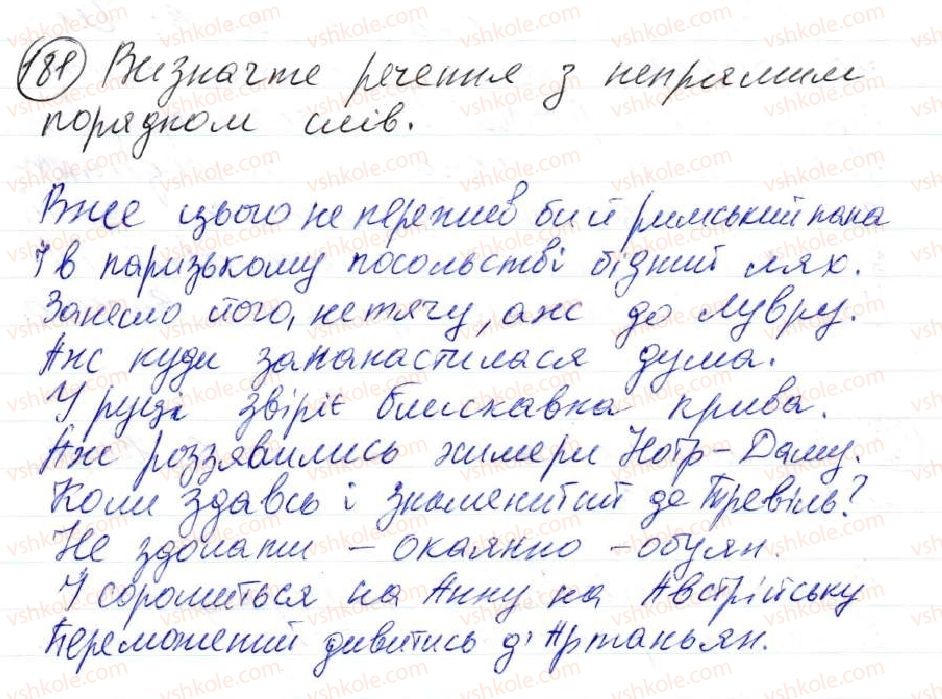 181 Визначте речення з непрямим
порядком слів.
Вже цього не пережив би й римський папа
І в паризькому посольстві бідний лях.
Занесло його, нетягу, аж до Лувру.
Аж куди запапастилася дума.
У руці звіріє блискавка крива.
Аж роззявились химери Нотр-Даму.
Коли здавсь і знаменитий де Тревіль?
Не здолати – окаянно – обуян.
І соромиться на Анну на Австрійську
Переможений дивитись д'Артаньян.